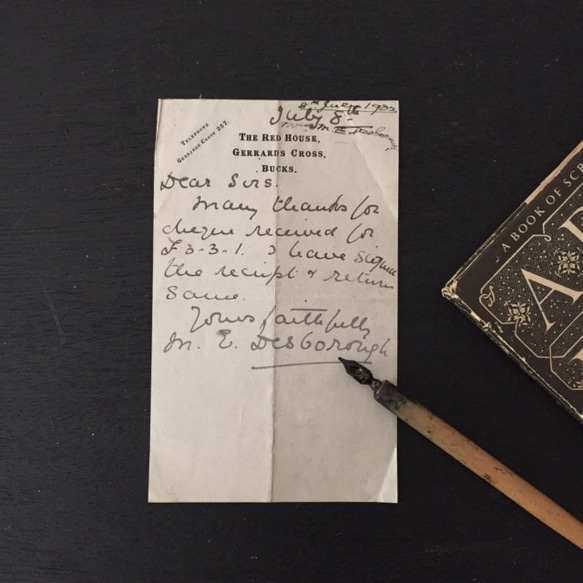 8th July 1932
July 8th
M. E. Desborough
TELEPHONE
GERRARDS CROSS 227.
THE RED HOUSE,
GERRARDS CROSS,
BUCKS.
Dear Sirs.
Many thanks for
cheque received for
£3-3-1. I have signed
the receipt & return
same.
Yours faithfully
M. E. Desborough
A BOOK OF SCR
A